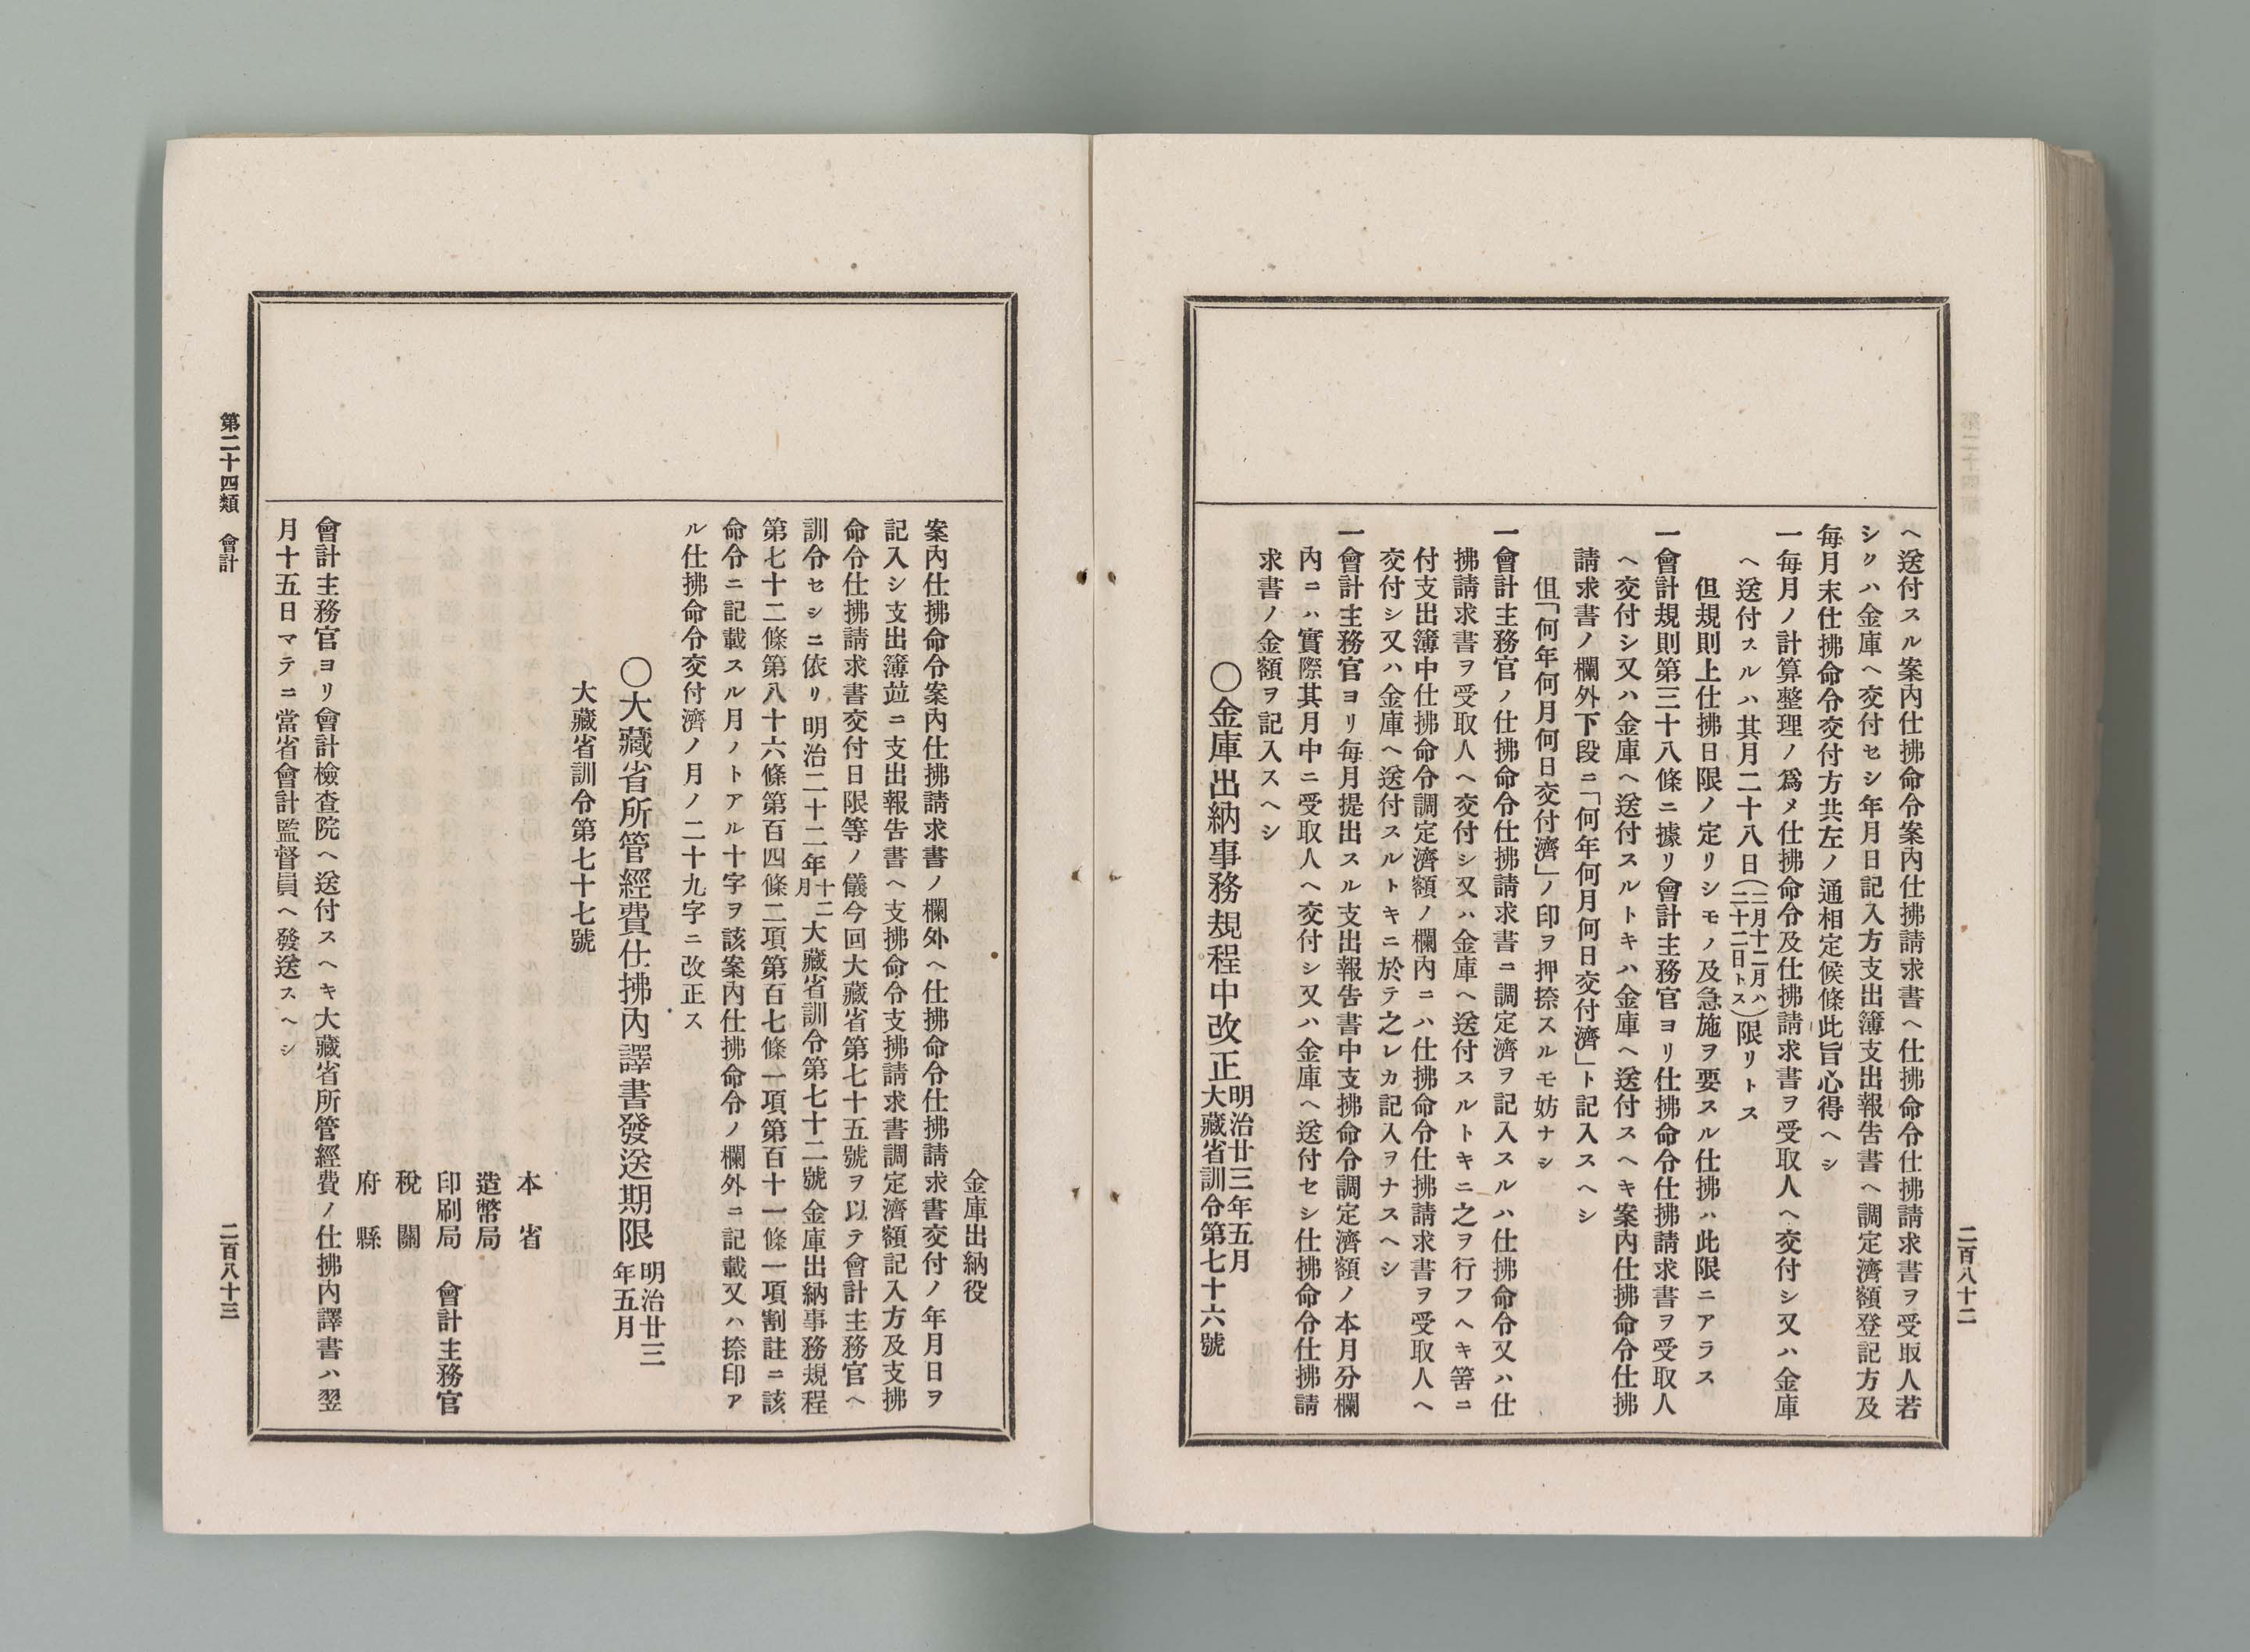 二百八十二
ヘ送付スル案内仕拂命令案内仕拂請求書ヘ仕拂命令仕拂請求書ヲ受取人若
シクハ金庫ヘ交付セシ年月日記入方支出簿支出報告書ヘ調定濟額登記方及
毎月末仕拂命令交付方共左ノ通相定候條此旨心得ヘシ
一毎月ノ計算整理ノ爲メ仕拂命令及仕拂請求書ヲ受取人ヘ交付シ又ハ金庫
ヘ送付スルハ其月二十八日(二月十二月ハ二十二日トス)限リトス
但規則上仕拂日限ノ定リシモノ及急施ヲ要スル仕拂ハ此限ニアラス
一會計規則第三十八條ニ據リ會計主務官ヨリ仕拂命令仕拂請求書ヲ受取人
ヘ交付シ又ハ金庫ヘ送付スルトキハ金庫ヘ送付スヘキ案内仕拂命令仕拂
請求書ノ欄外下段ニ「何年何月何日交付濟」ト記入スヘシ
但「何年何月何日交付濟」ノ印ヲ押捺スルモ妨ナシ
一會計主務官ノ仕拂命令仕拂請求書ニ調定濟ヲ記入スルハ仕拂命令又ハ仕
拂請求書ヲ受取人ヘ交付シ又ハ金庫ヘ送付スルトキニ之ヲ行フヘキ筈ニ
付支出簿中仕拂命令調定濟額ノ欄内ニハ仕拂命令仕拂請求書ヲ受取人ヘ
交付シ又ハ金庫ヘ送付スルトキニ於テ之レカ記入ヲナスヘシ
一會計主務官ヨリ毎月提出スル支出報告書中支拂命令調定濟額ノ本月分欄
内ニハ實際其月中ニ受取人ヘ交付シ又ハ金庫ヘ送付セシ仕拂命令仕拂請
求書ノ金額ヲ記入スヘシ
〇金庫出納事務規程中改正 明治廿三年五月大藏省訓令第七十六號
金庫出納役
案内仕拂命令案内仕拂請求書ノ欄外ヘ仕拂命令仕拂請求書交付ノ年月日ヲ
記入シ支出簿並ニ支出報告書ヘ支拂命令支拂請求書調定濟額記入方及支拂
命令仕拂請求書交付日限等ノ儀今回大藏省第七十五號ヲ以テ會計主務官ヘ
訓令セシニ依リ明治二十二年十二月大藏省訓令第七十二號金庫出納事務規程
第七十二條第八十六條第百四條二項第百七條一項第百十一條一項割註ニ該
命令ニ記載スル月ノトアル十字ヲ該案内仕拂命令ノ欄外ニ記載又ハ捺印ア
ル仕拂命令交付濟ノ月ノ二十九字ニ改正ス
〇大藏省所管經費仕拂内譯書發送期限 明治廿三年五月
大藏省訓令第七十七號
本省
造幣局
印刷局 會計主務官
稅關
府縣
會計主務官ヨリ會計檢查院ヘ送付スヘキ大藏省所管經費ノ仕拂内譯書ハ翌
月十五日マテニ當省會計監督員ヘ發送スヘシ
第二十四類 會計
二百八十三